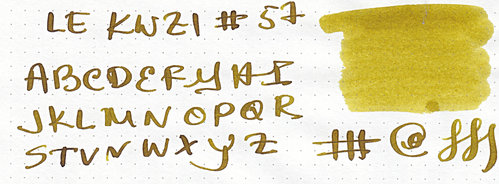 LE KWZI # 57
ABCDEFGHI
JKLMNOPQR
STUVWXYZ # @ fff